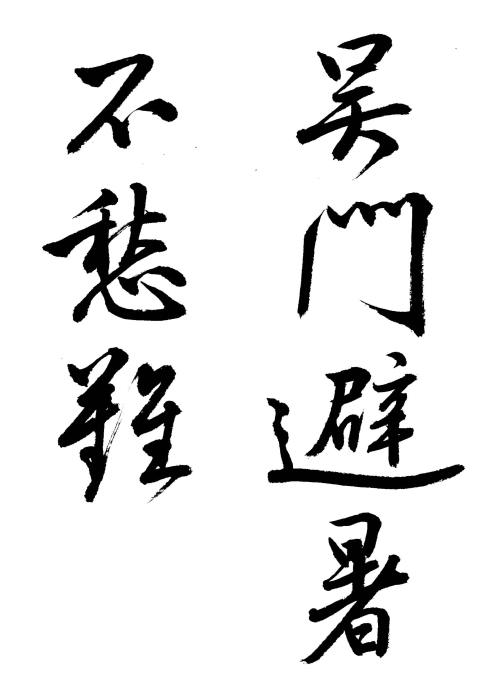 吴門避暑
不愁難